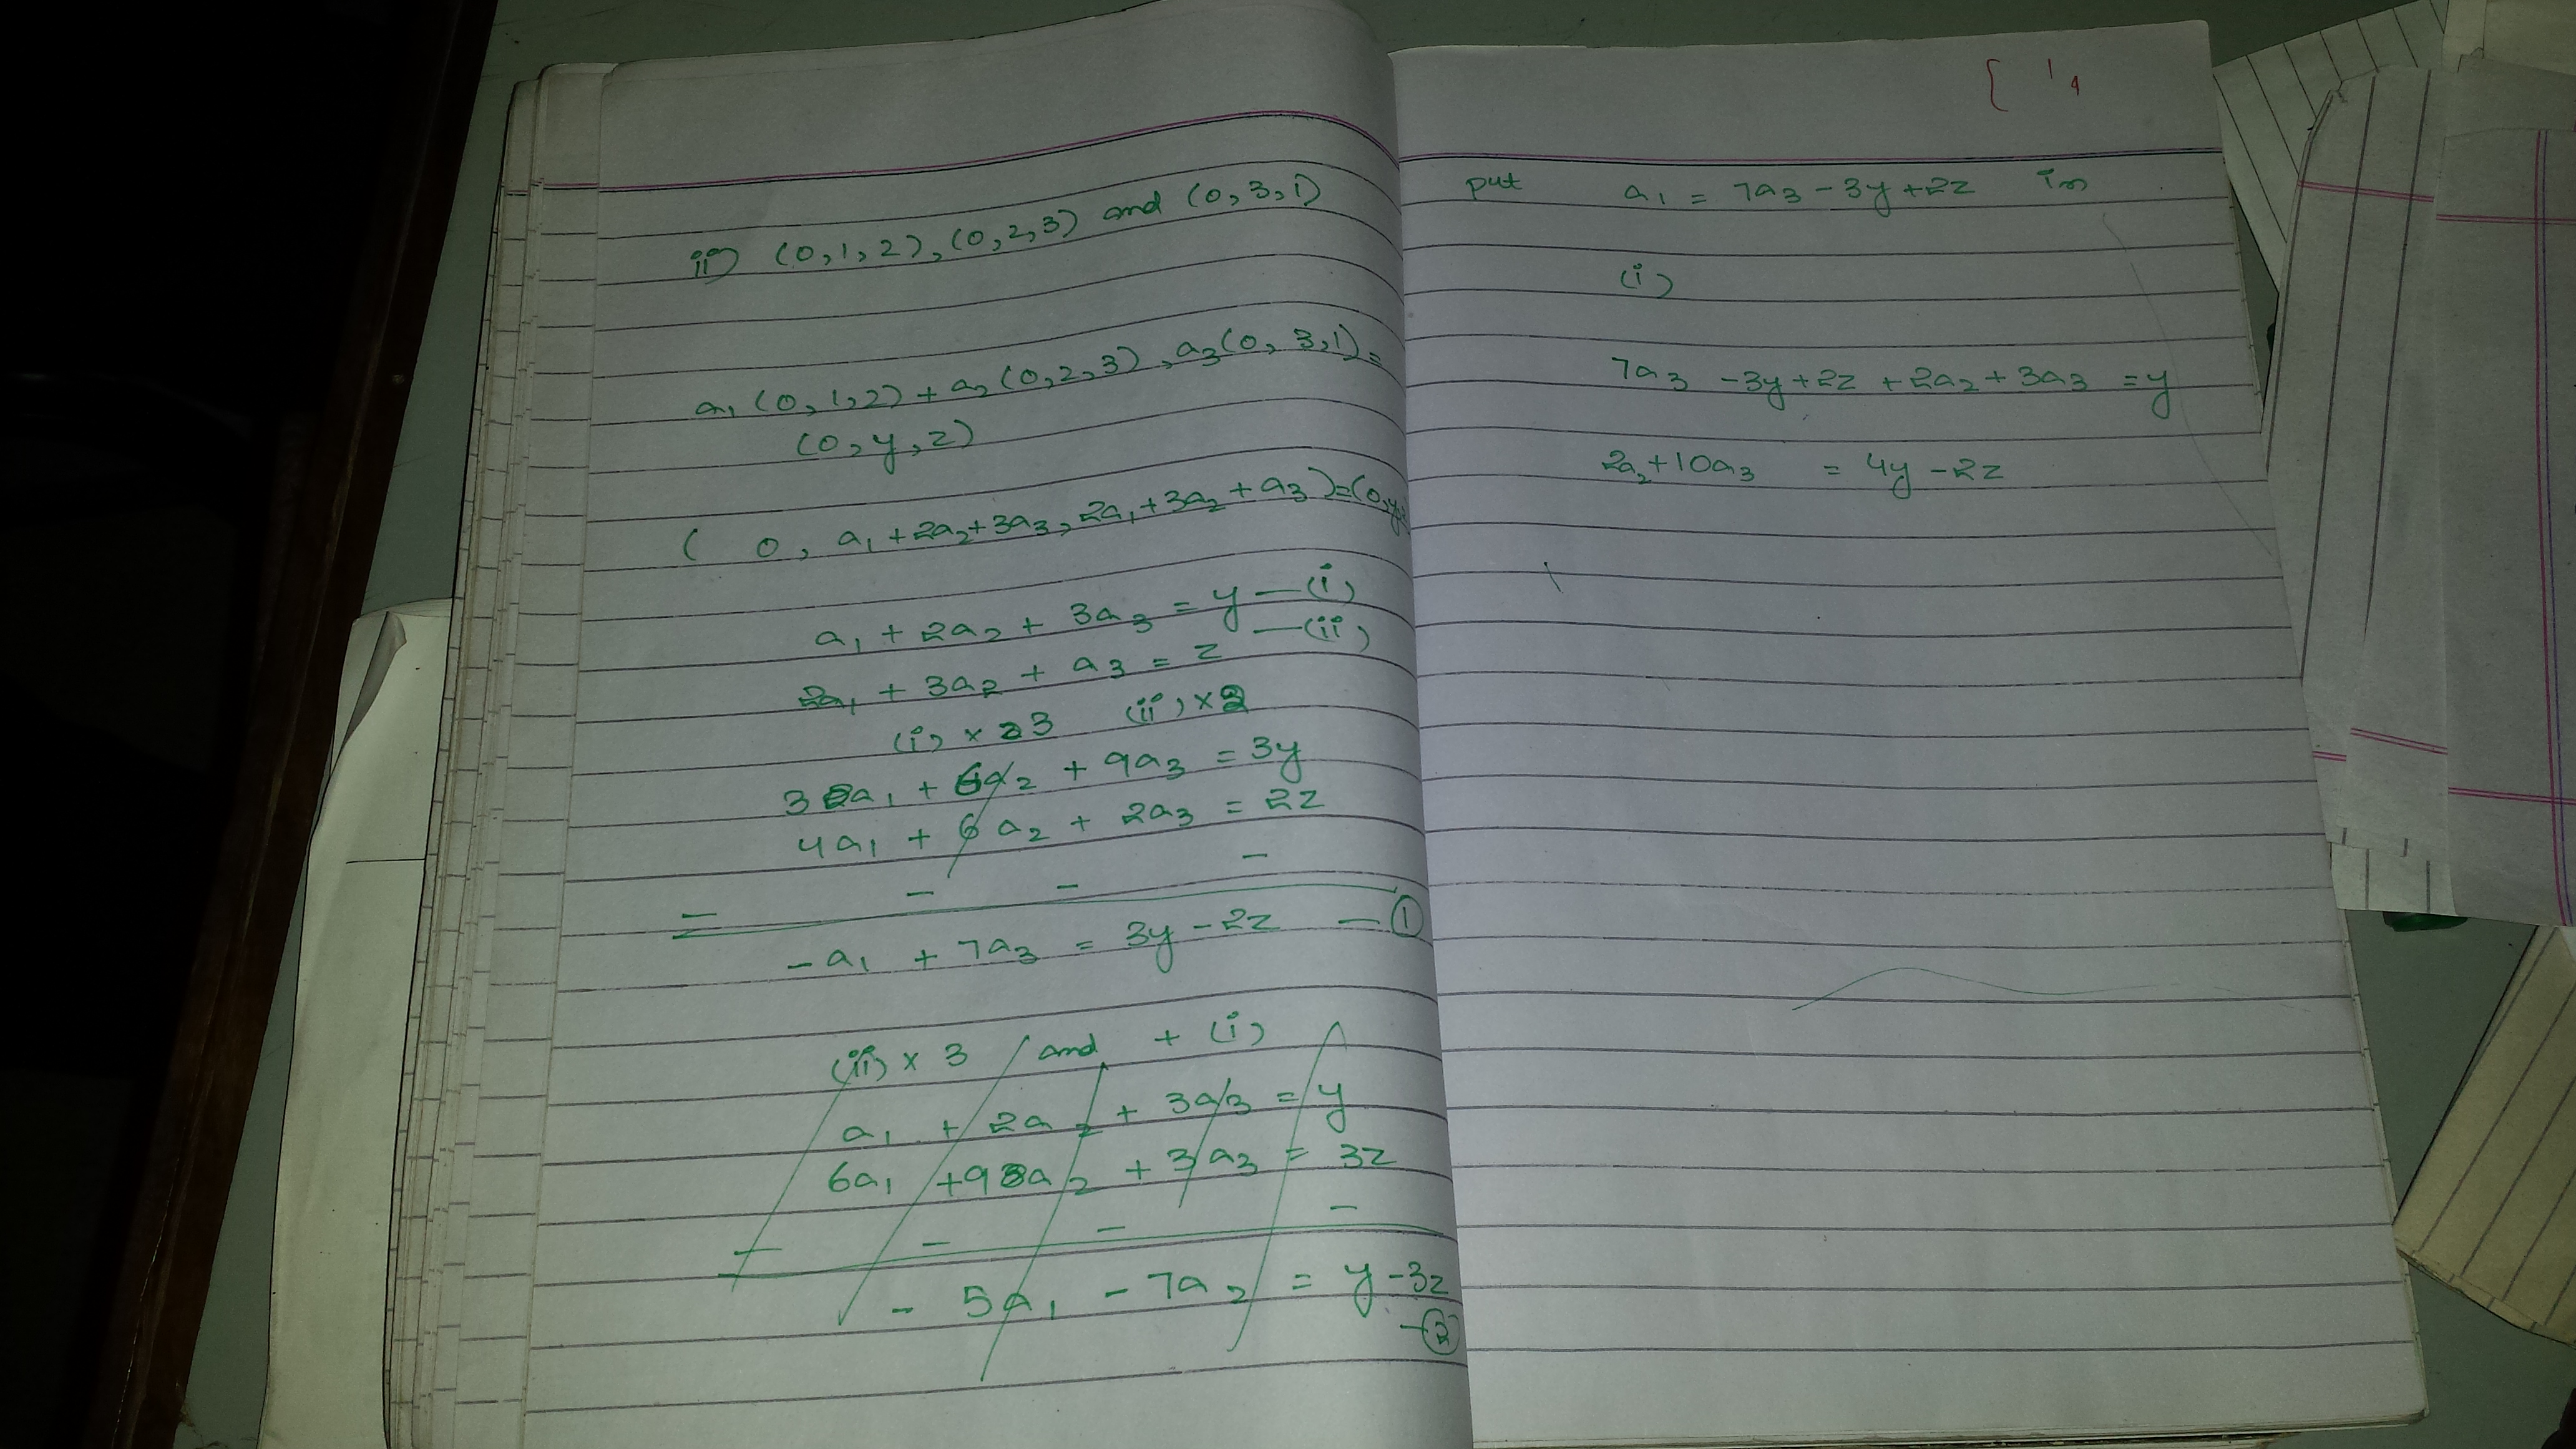 ii) (0,1,2), (0,2,3) and (0,3,1)
a₁(0,1,2) + a₂(0,2,3), a₃(0,3,1) =
(0,y,z)
( 0, a₁+2a₂+3a₃, 2a₁+3a₂+a₃) = (0,y,
a₁ + 2a₂ + 3a₃ = y — (i)
2a₁ + 3a₂ + a₃ = z — (ii)
(i) × 3 (ii) × 2
3a₁ + 6a₂ + 9a₃ = 3y
4a₁ + 6a₂ + 2a₃ = 2z
- - - -
-a₁ + 7a₃ = 3y - 2z — ①
(ii) × 3 and + (i)
a₁ + 2a₂ + 3a₃ = y
6a₁ + 9a₂ + 3a₃ = 3z
- - - -
- 5a₁ - 7a₂ = y - 3z
- ②
put a₁ = 7a₃ - 3y + 2z in
(i)
7a₃ - 3y + 2z + 2a₂ + 3a₃ = y
2a₂ + 10a₃ = 4y - 2z